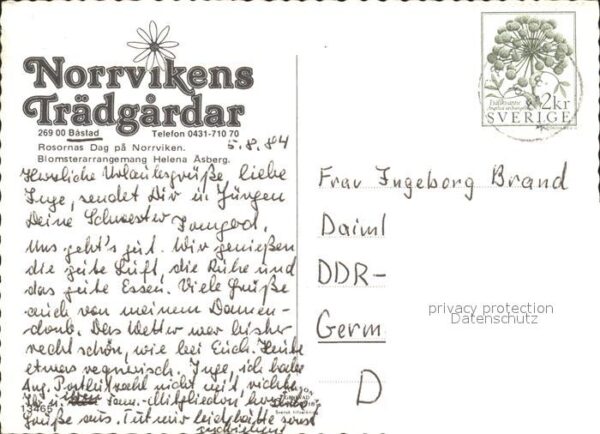 Norrvikens
Trädgårdar
269 00 Båstad Telefon 0431-710 70
Rosornas Dag på Norrviken.
Blomsterarrangemang Helena Åsberg.
5.8.84
Herzliche Urlaubsgrüße, liebe
Inge, sendet Dir u. Jürgen
Deine Schwester
Uns geht's gut. Wir genießen
die gute Luft, die Ruhe und
das gute Essen. Viele Grüße
auch von meinem Damen-
Das Wetter war bisher
recht schön, wie bei Euch. Heute
etwas regnerisch. Inge, ich habe
nicht mit
Fam.-Mitglieden
Grüße aus. Tut mir leid, hätte sonst
geschrieben
13465
2 kr
SVERIGE
Frau Ingeborg Brand
Daiml
DDR-
Germ
D
privacy protection
Datenschutz